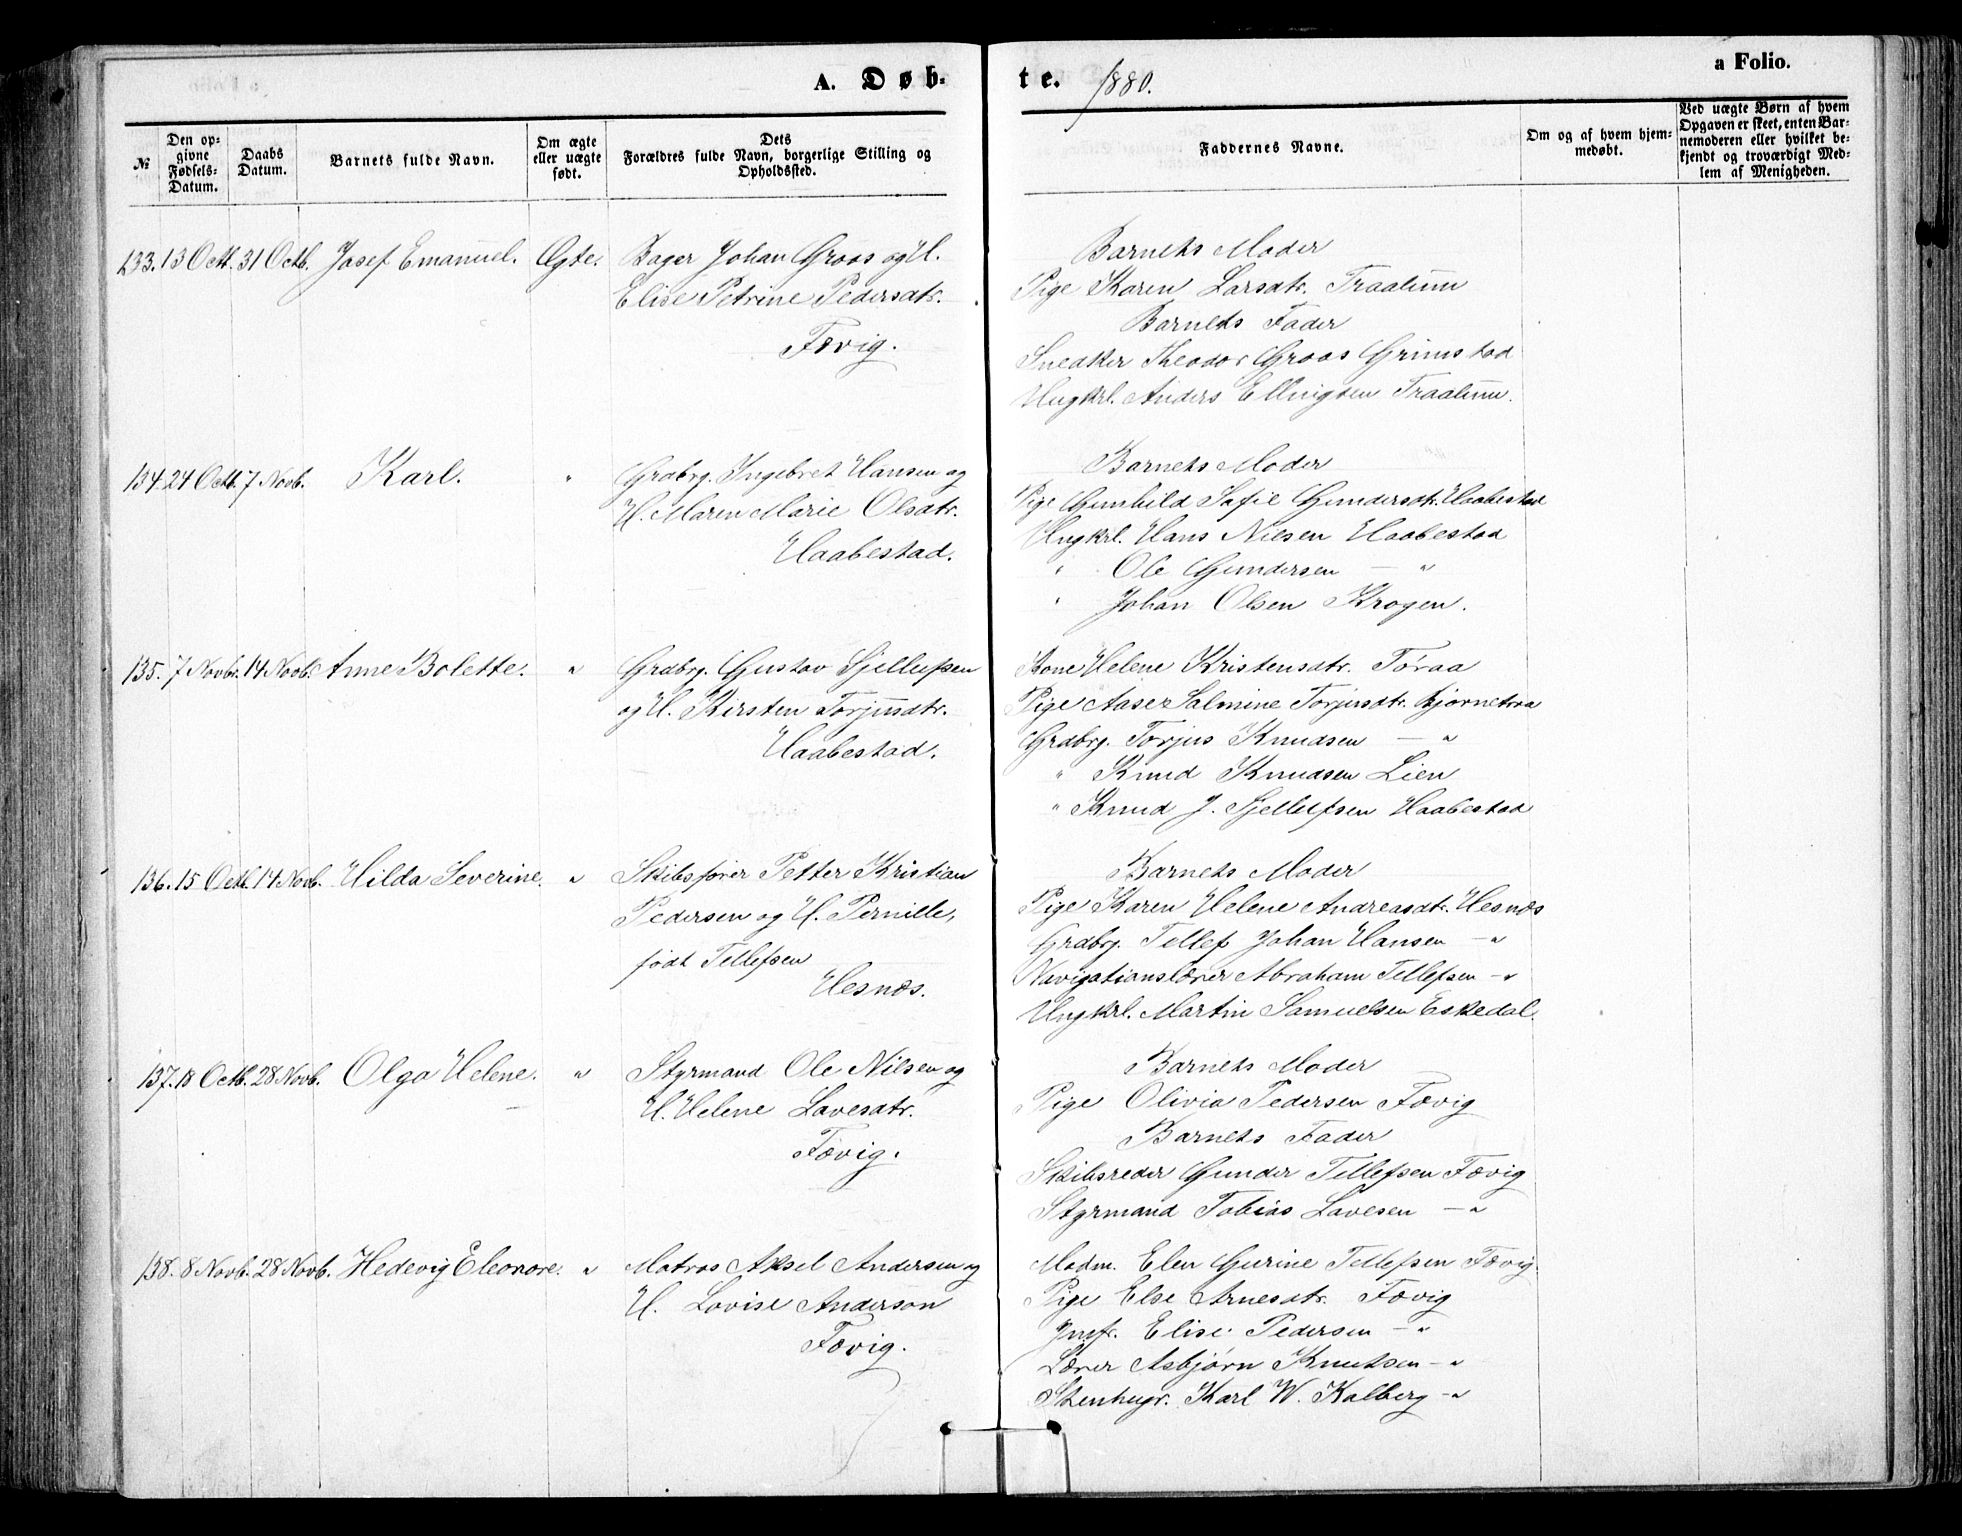 A. Døb-
te. 1880.
a Folio.
№
Den op-
givne
Fødsels-
Datum.
Daabs
Datum.
Barnets fulde Navn.
Om ægte
eller uægte
født.
Dets
Forældres fulde Navn, borgerlige Stilling og
Opholdssted.
Faddernes Navne.
Om og af hvem hjem-
medøbt.
Ved uægte Børn af hvem
Opgaven er skeet, enten Bar-
nemoderen eller hvilket be-
kjendt og troværdigt Med-
lem af Menigheden.
133. 13 Octb. 31 Octb. Josef Emanuel. Ægte. Bager Johan Groos og H.
Elise Petrine Pedersdtr.
Fævig.
Barnets Moder
Pige Karen Larsdtr. Traalum
Barnets Fader
Snedker Theodor Groos Grimstad
Ungkrl. Anders Ellingsen Traalum.
134. 24 Octb. 7 Novb. Karl. " Grdbrg. Ingebret Hansen og
H. Maren Marie Olsdtr.
Haabestad.
Barnets Moder
Pige Gunhild Sofie Gundersdtr. Haabestad
Ungkrl. Hans Nilsen Haabestad
" Ole Gundersen — "
" Johan Olsen Krogen.
135. 7 Novb. 14 Novb. Anne Bolette. " Grdbrg. Gustav Sjellefsen
og H. Kirsten Torjusdtr.
Haabestad.
Kone Helene Kristensdtr. Toraa
Pige Aase Salmine Torjusdtr. Bjørnetraa
Grdbrg. Torjus Knudsen — "
" Knud Knudsen Lien
" Knud J. Sjellefsen Haabestad
136. 15 Octb. 14 Novb. Hilda Severine. " Skibsfører Petter Kristian
Pedersen og H. Pernille,
født Tellefsen
Hesnæs.
Barnets Moder
Pige Karen Helene Andreasdtr. Hesnæs
Grdbrg. Tellef Johan Hansen — "
Navigationslærer Abraham Tellefsen — "
Ungkrl. Martin Samuelsen Eskedal.
137. 18 Octb. 28 Novb. Olga Helene. " Styrmand Ole Nilsen og
H. Helene Lavesdtr.
Fævig.
Barnets Moder
Pige Olivia Pedersen Fævig
Barnets Fader
Skibsreder Gunder Tellefsen Fævig
Styrmand Tobias Lavesen — "
138. 8 Novb. 28 Novb. Hedevig Eleonore. " Matros Aksel Andersen og
H. Lovise Anderson
Fævig.
Madm. Elen Gurine Tellefsen Fævig.
Pige Else Arnesdtr. Fævig
Jmfr. Elise Pedersen — "
Lærer Asbjørn Knutsen — "
Stenhugr. Karl W. Kalberg — "